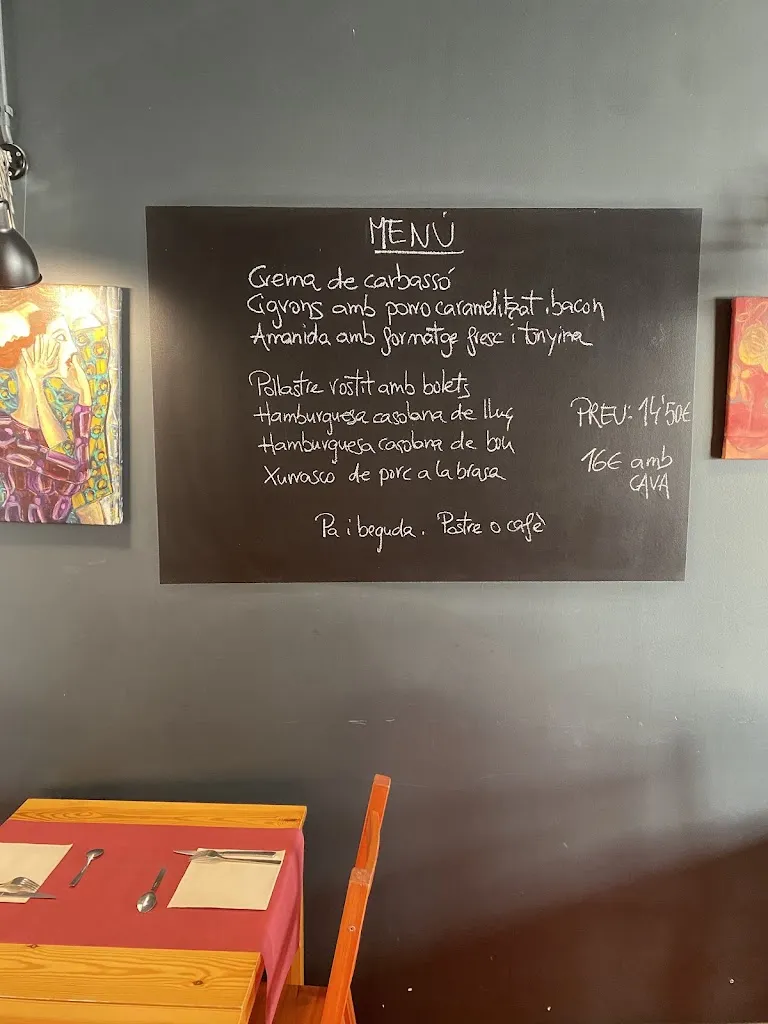 MENÚ
Crema de carbassó
Cigrons amb porro caramelitzat i bacon
Amanida amb formatge fresc i tonyina
Pollastre rostit amb bolets
Hamburguesa casolana de lluç
Hamburguesa casolana de bou
Xurrasco de porc a la brasa
PREU: 14'50€
16€ amb
CAVA
Pa i beguda. Postre o cafè